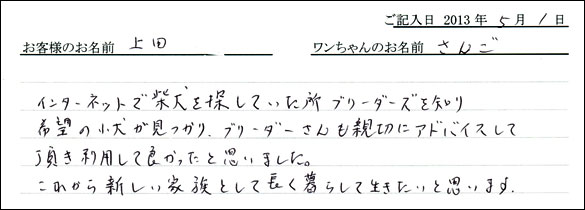 ご記入日 2013 年 5 月 1 日
お客様のお名前 上田 ワンちゃんのお名前 さんご
インターネットで柴犬を探していた所 ブリーダーズを知り
希望の小犬が見つかり、ブリーダーさんも親切にアドバイスして
頂き利用して良かったと思いました。
これから新しい家族として長く暮らして生きたいと思います.